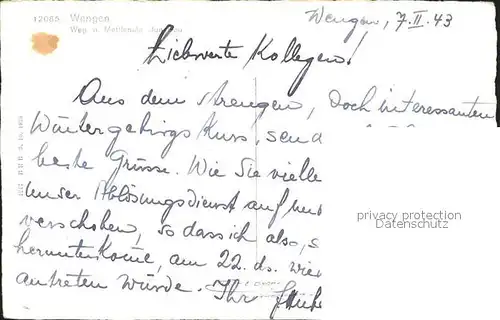 12065 Wengen
Weg n. Mettlenalp Jungfrau
Wengen, 7.II.43
Liebwerte Kollegen!
Aus dem strengen, doch interessanten
Wintergebirgskurs, send
beste Grüsse. Wie Sie vielle
unser Ablösungsdienst auf
verschoben, so dass ich also, s
herunterkome, am 22. ds. wie
antreten würde. Ihr
privacy protection
Datenschutz